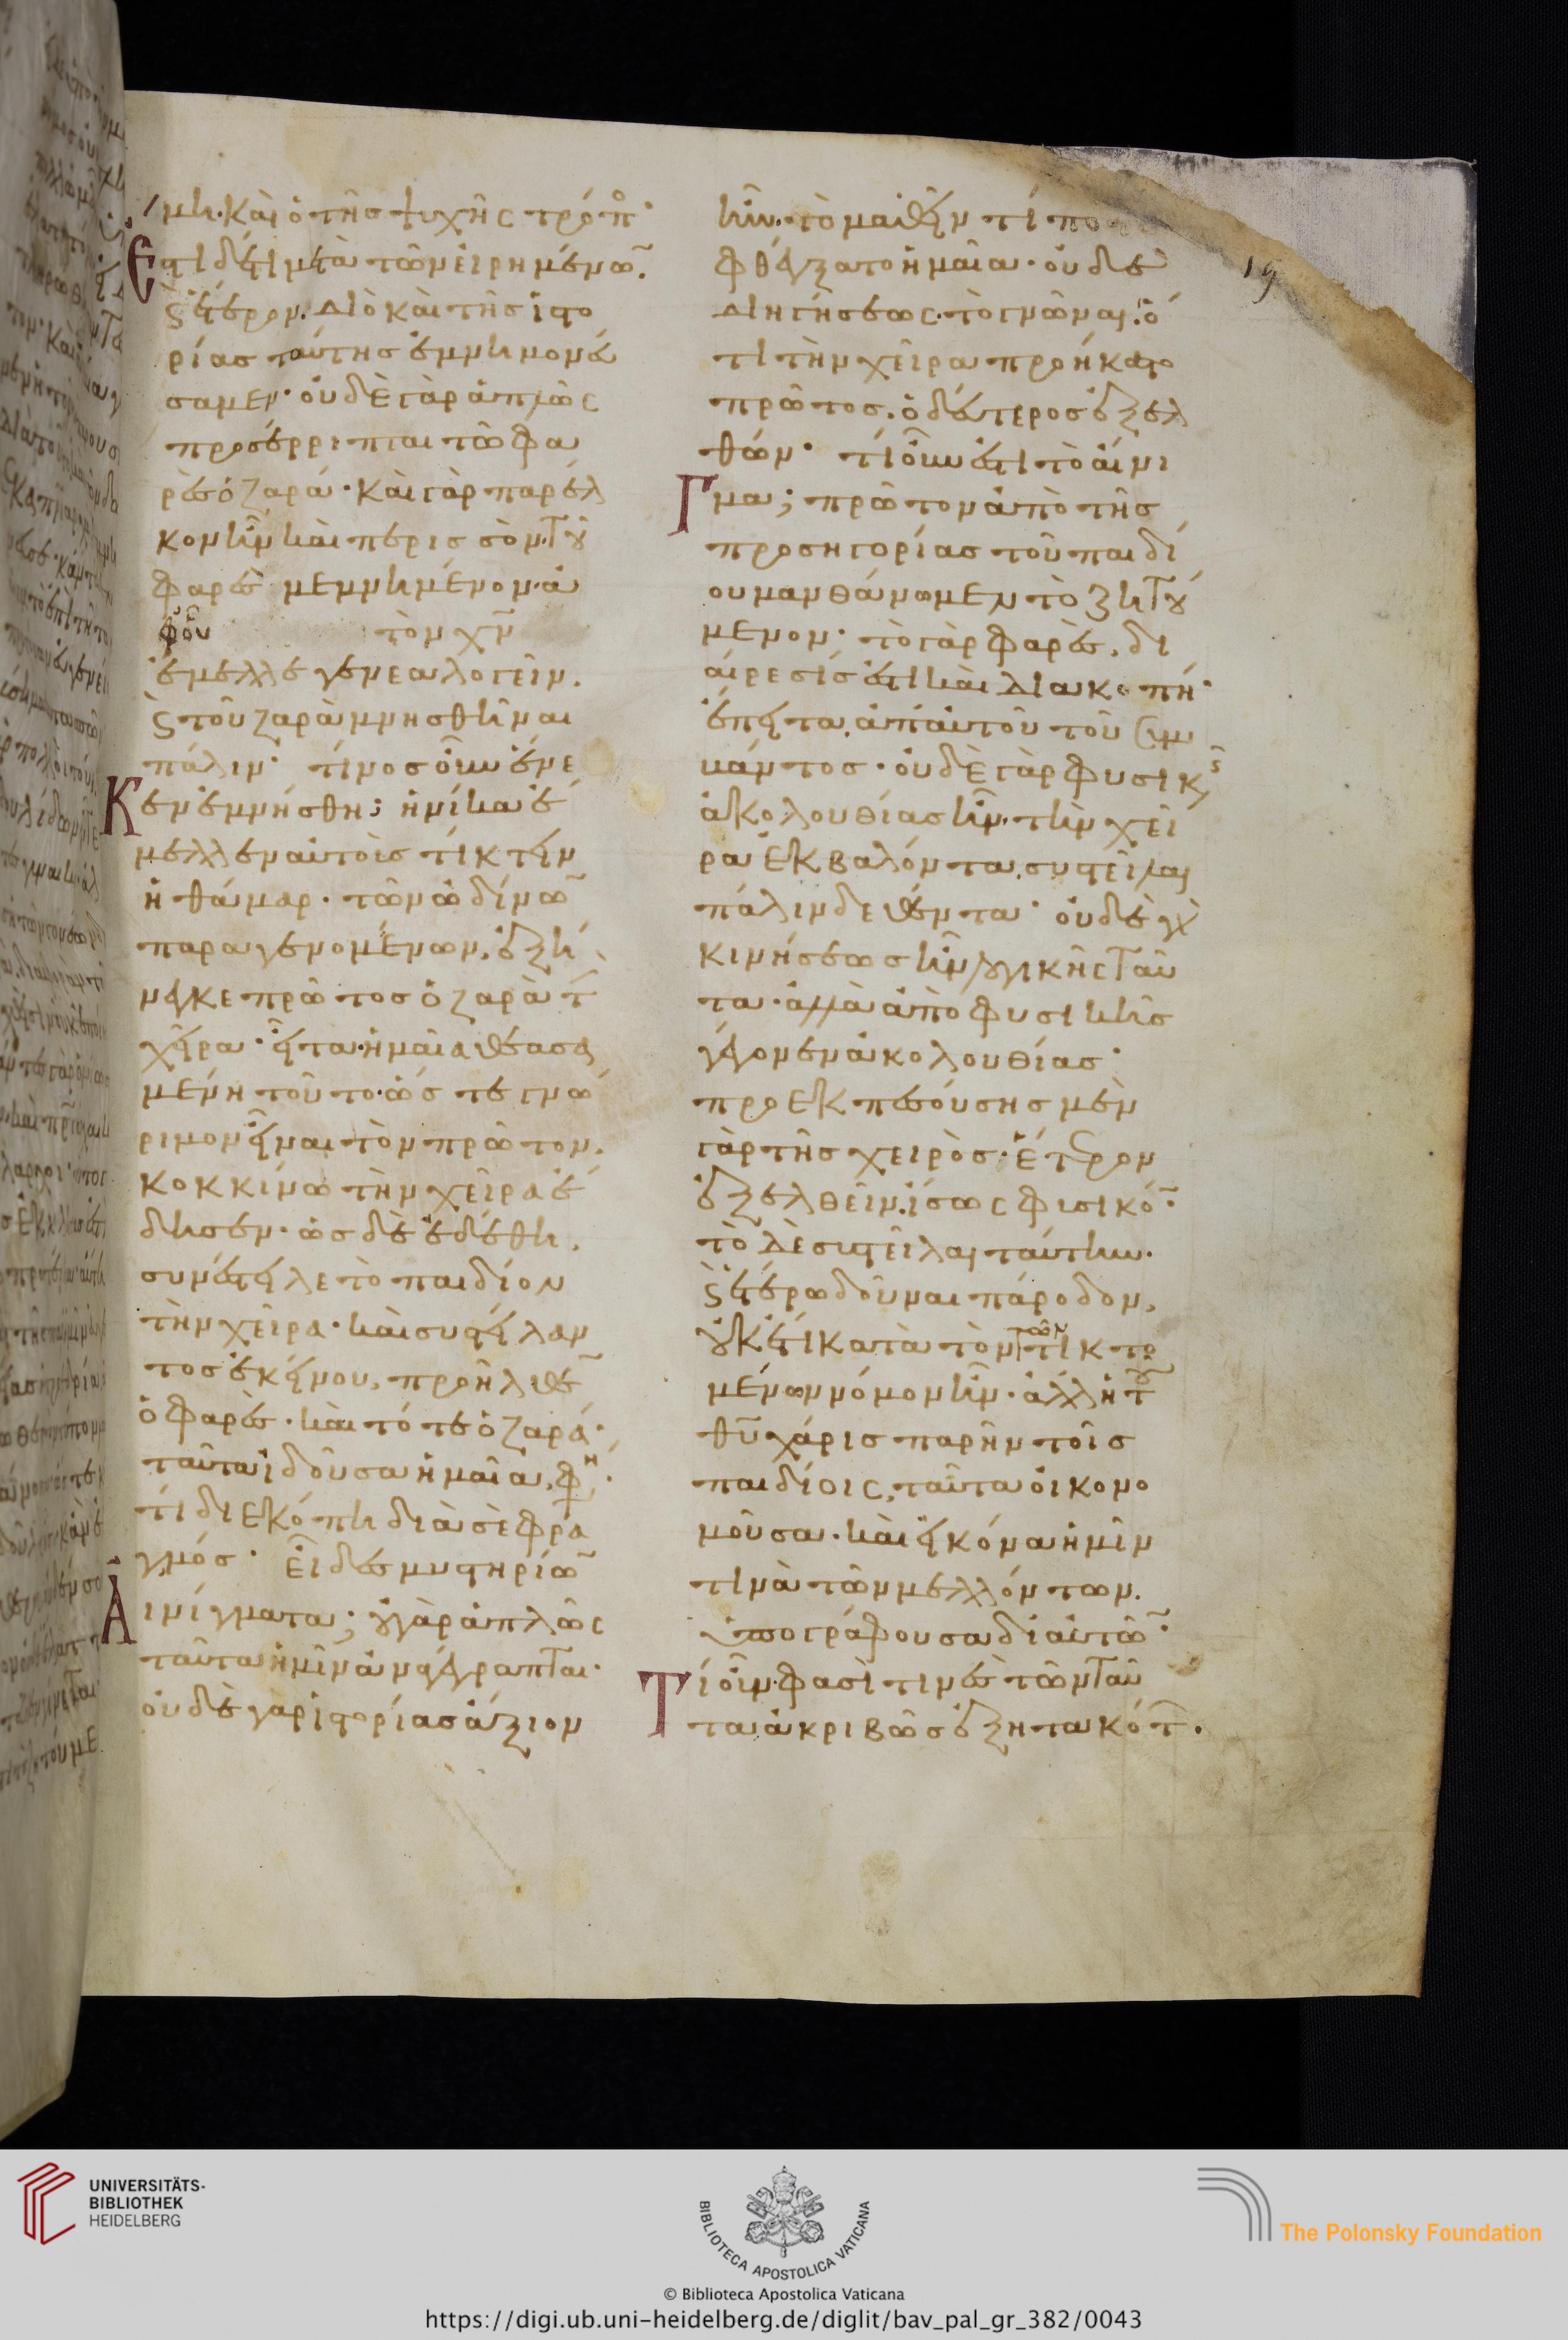 μη· καὶ ὁ τῆς ψυχῆς τρόπ·
Ἔστι δέ τι μετὰ τῶν εἰρημένω̅.
ϛ̀ ἕτερον. Διὸ καὶ τῆς ἱστο
ρίας ταύτης ἐμνημονεύ
σαμεν· οὐδὲ γὰρ ἁπλῶς
προσέρριπται τῶ φα
ρὲς ὁ ζαρά· καὶ γὰρ παρέλ
κον ἦν καὶ περισσὸν. τοῦ
φαρὲς μεμνημένον· ἀ
φοὗ τὸν χ̅ν̅
ἔμελλε γενεαλογεῖν.
ϛ̀ τοῦ ζαρὰ μνησθῆναι
πάλιν· τίνος οὖν ἕνε
κεν ἐμνήσθη; ἡνίκα ἔ
μελλεν αὐτοὺς τίκτειν
ἡ θάμαρ. τῶν ὠδίνω̅
παραγενομένων. ἐξή
νεγκε πρῶτος ὁ ζαρὰ τ̅
χεῖρα· εἶτα ἡ μαῖα θεασα
μένη τοῦτο. ὥστε γνώ
ριμον εἶναι τὸν πρῶτον.
κοκκίνω τὴν χεῖρα ἔ
δησεν· ὡς δὲ ἐδέθη.
συνέστειλε τὸ παιδίον
τὴν χεῖρα· καὶ συστείλαν
τος ἐκείνου. προῆλθε̅
ὁ φαρὲς. καὶ τότε ὁ ζαρά·
ταῦτα ἰδοῦσα ἡ μαῖα, φη·
τί διεκόπη διὰ σὲ φρα
γμός· εἶδες μυστηρίω̅
Αἰνίγματα; οὐ γὰρ ἁπλῶς
ταῦτα ἡμῖν ἀναγέγραπται·
οὐδὲ γὰρ ἱστορίας ἄξιον
ἦν. τὸ μαθεῖν τί πο
φθέγξατο ἡ μαῖα· οὐδὲ
διηγήσεως. τὸ γνῶναι. ὅ
τι τὴν χεῖρα προήκατο
πρῶτος. ὁ δεύτερος ἐξελ
θών· τί οὖν ἐστι τὸ αἴνι
Γμα; πρῶτον ἀπὸ τῆς
προσηγορίας τοῦ παιδί
ου μανθάνωμεν τὸ ζητού
μενον· τὸ γὰρ φαρὲς, δι
αίρεσίς ἐστι καὶ διακοπή·
ἔπειτα. ἀπ' αὐτοῦ τοῦ συμ
βάντος· οὐδὲ γὰρ φυσικῆς
ἀκολουθίας ἦν. τὴν χεῖ
ρα ἐκβαλόντα. συστεῖλαι
πάλιν δεθέντα· οὐδὲ γὰρ
κινήσεως ἦν λογικῆς ταῦ
τα· ἀλλὰ ἀπὸ φυσικῆς
γέγονεν ἀκολουθίας·
προεκπεσούσης μὲν
γὰρ τῆς χειρὸς. ἕτερον
ἐξελθεῖν. ἴσως φυσικό̅·
τὸ δὲ συστεῖλαι ταύτην.
ϛ̀ ἑτέρω δοῦναι πάροδον.
οὐκέτι κατὰ τὸν τῶν τικτο
μένων νόμον ἦν. ἀλλ' ἡ τοῦ
θ̅υ̅ χάρις παρῆν τοῖς
παιδίοις. ταῦτα οἰκονο
μοῦσα. καὶ εἰκόνα ἡμῖν
τινὰ τῶν μελλόντων.
ὑπογράφουσα δι' αὐτῶ̅·
Τί οὖν. φασὶ τινὲς τῶν ταῦ
τα ἀκριβῶς ἐξητακότ̅.
19
UNIVERSITÄTS-
BIBLIOTHEK
HEIDELBERG
BIBLIOTECA APOSTOLICA VATICANA
The Polonsky Foundation
© Biblioteca Apostolica Vaticana
https://digi.ub.uni-heidelberg.de/diglit/bav_pal_gr_382/0043